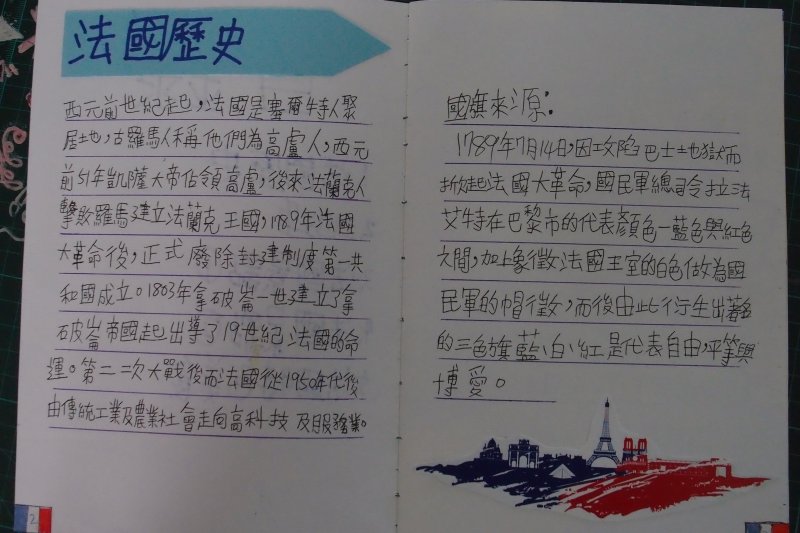 法國歷史
西元前世紀起，法國是塞爾特人聚
居地，古羅馬人稱他們為高盧人，西元
前51年凱薩大帝佔領高盧，後來法蘭克人
擊敗羅馬建立法蘭克王國，1789年法國
大革命後，正式廢除封建制度第一共
和國成立。1803年拿破崙一世建立了拿
破崙帝國起出導了19世紀法國的命
運。第二次大戰後而法國從1950年代後
由傳統工業及農業社會走向高科技及服務業。
2
國旗來源：
1789年7月14日，因攻陷巴士土地獄而
掀起法國大革命，國民軍總司令拉法
艾特在巴黎市的代表顏色－藍色與紅色
之間，加上象徵法國王室的白色做為國
民軍的帽徵，而後由此衍生出著名
的三色旗藍、白、紅是代表自由，平等與
博愛。